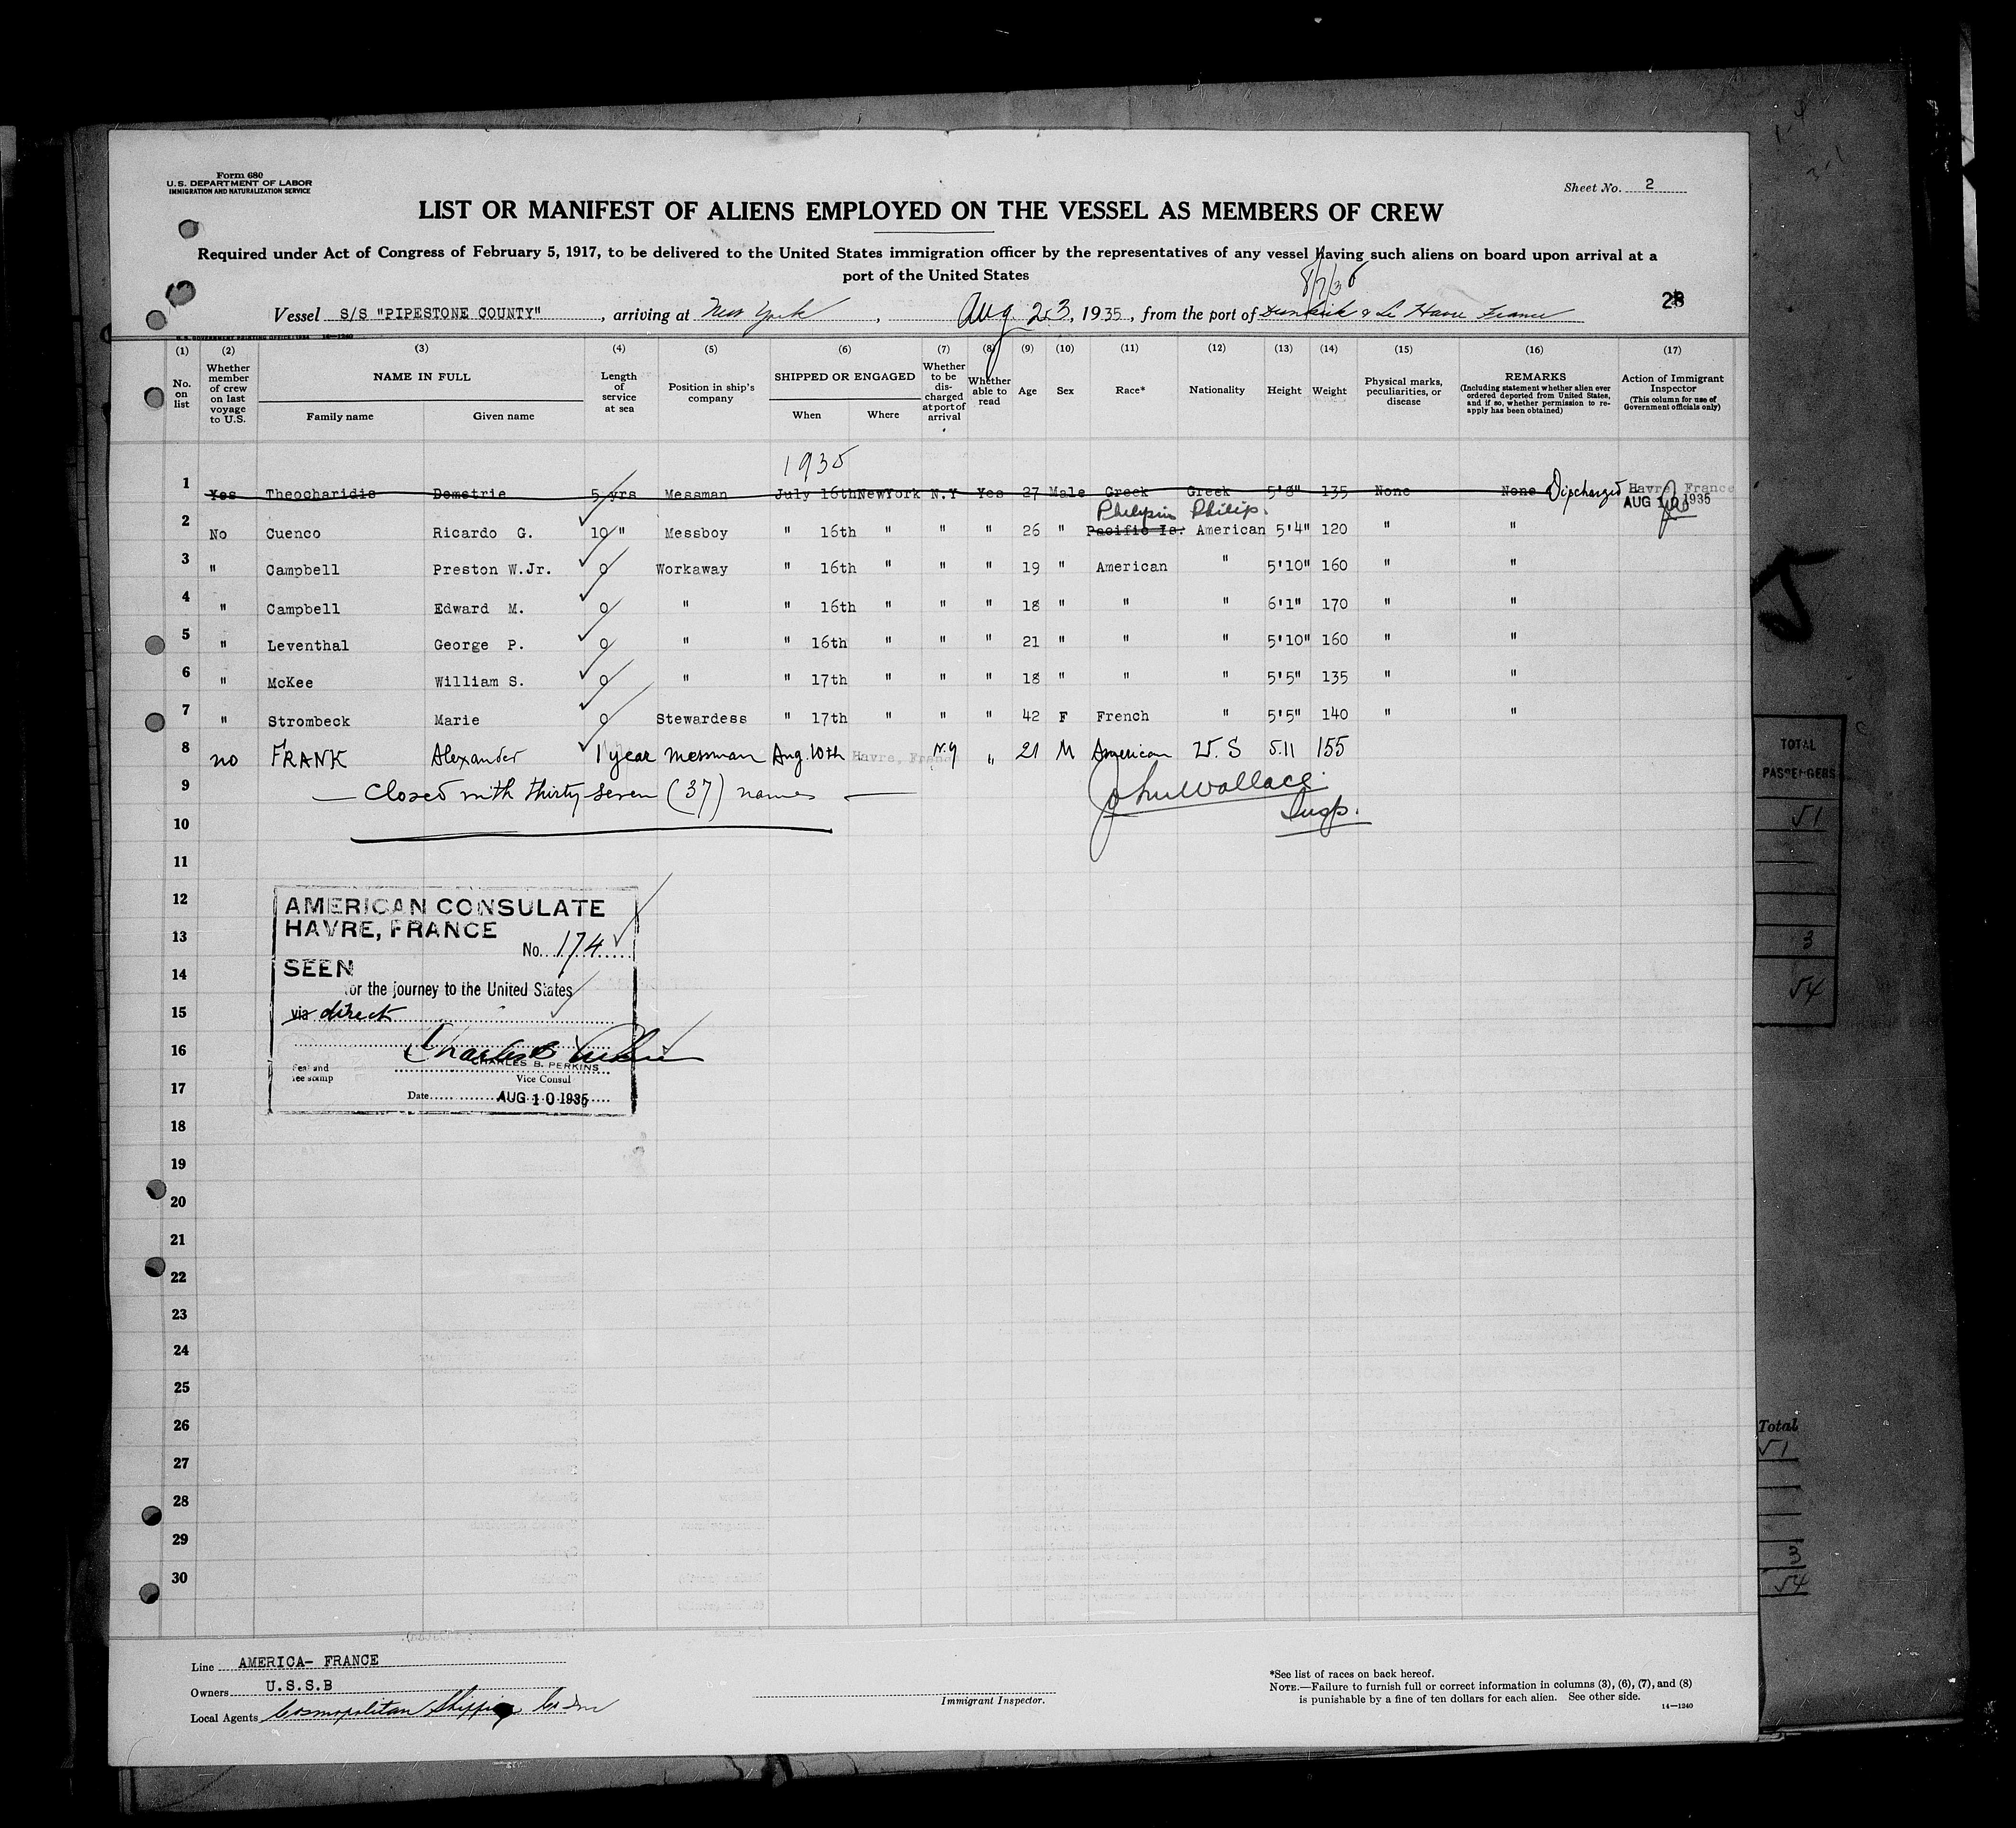 Form 680
U.S. DEPARTMENT OF LABOR
IMMIGRATION AND NATURALIZATION SERVICE
Sheet No. 2
LIST OR MANIFEST OF ALIENS EMPLOYED ON THE VESSEL AS MEMBERS OF CREW
Required under Act of Congress of February 5, 1917, to be delivered to the United States immigration officer by the representatives of any vessel having such aliens on board upon arrival at a
port of the United States
Vessel S/S "PIPESTONE COUNTY", arriving at New York, Aug 23, 1935, from the port of Dunkirk & Le Havre France
(1) (2) (3) (4) (5) (6) (7) (8) (9) (10) (11) (12) (13) (14) (15) (16) (17)
No. on list
Whether member of crew on last voyage to U.S.
NAME IN FULL
Family name Given name
Length of service at sea
Position in ship's company
SHIPPED OR ENGAGED
When Where
Whether to be discharged at port of arrival
Whether able to read
Age
Sex
Race*
Nationality
Height
Weight
Physical marks, peculiarities, or disease
REMARKS
(Including statement whether alien ever ordered deported from United States, and if so, whether permission to reapply has been obtained)
Action of Immigrant Inspector
(This column for use of Government officials only)
1935
1 Yes Theocharidis Demetrie 5 yrs Messman July 16th NewYork N.Y Yes 27 Male Greek Greek 5'8" 135 None None Discharged Havre, France
AUG 10 1935
Philipin Philip.
2 No Cuenco Ricardo G. 10 " Messboy " 16th " " " 26 " Pacific Is. American 5'4" 120 " "
3 " Campbell Preston W.Jr. 0 Workaway " 16th " " " 19 " American " 5'10" 160 " "
4 " Campbell Edward M. 0 " " 16th " " " 18 " " " 6'1" 170 " "
5 " Leventhal George P. 0 " " 16th " " " 21 " " " 5'10" 160 " "
6 " McKee William S. 0 " " 17th " " " 18 " " " 5'5" 135 " "
7 " Strombeck Marie 0 Stewardess " 17th " " " 42 F French " 5'5" 140 " "
8 no FRANK Alexander 1 year Messman Aug. 10th Havre, France N.Y " 21 M American U.S 5.11 155
9 — Closed with thirty seven (37) names — John Wallace
Insp.
10
11
12
13
14
15
16
17
18
19
20
21
22
23
24
25
26
27
28
29
30
AMERICAN CONSULATE
HAVRE, FRANCE
No. 174
SEEN
for the journey to the United States
via direct
Charles B Perkins
CHARLES B. PERKINS
Seal and
fee stamp
Vice Consul
Date AUG 10 1935
Line AMERICA- FRANCE
Owners U.S.S.B
Local Agents Cosmopolitan Shipping Co Inc
Immigrant Inspector.
*See list of races on back hereof.
NOTE.—Failure to furnish full or correct information in columns (3), (6), (7), and (8)
is punishable by a fine of ten dollars for each alien. See other side.
14—1240
TOTAL
PASSENGERS
51
3
54
Total
51
3
54